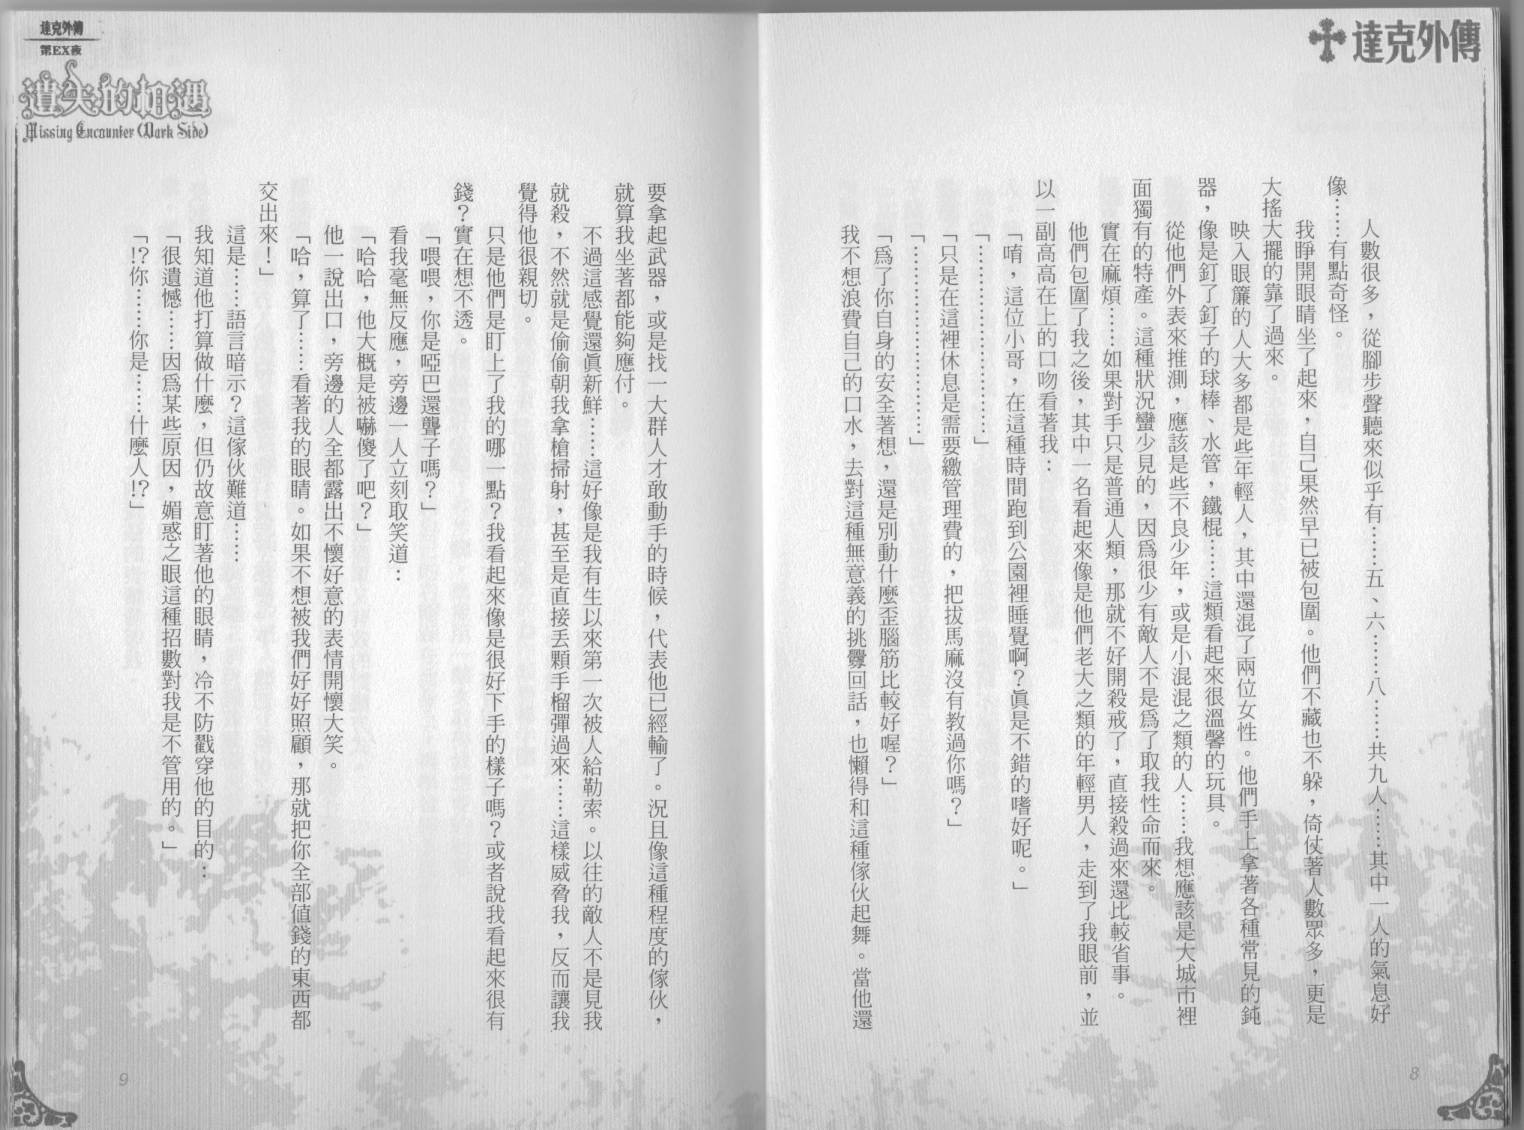 達克外傳
人數很多，從腳步聲聽來似乎有……五、六……八……共九人……其中一人的氣息好
像……有點奇怪。
我睜開眼睛坐了起來，自己果然早已被包圍。他們不藏也不躲，倚仗著人數眾多，更是
大搖大擺的靠了過來。
映入眼簾的人大多都是些年輕人，其中還混了兩位女性。他們手上拿著各種常見的鈍
器，像是釘了釘子的球棒、水管，鐵棍……這類看起來很溫馨的玩具。
從他們外表來推測，應該是些不良少年，或是小混混之類的人……我想應該是大城市裡
面獨有的特產。這種狀況蠻少見的，因爲很少有敵人不是爲了取我性命而來。
實在麻煩……如果對手只是普通人類，那就不好開殺戒了，直接殺過來還比較省事。
他們包圍了我之後，其中一名看起來像是他們老大之類的年輕男人，走到了我眼前，並
以一副高高在上的口吻看著我：
「唷，這位小哥，在這種時間跑到公園裡睡覺啊？眞是不錯的嗜好呢。」
「………………………」
「只是在這裡休息是需要繳管理費的，把拔馬麻沒有教過你嗎？」
「………………………」
「爲了你自身的安全著想，還是別動什麼歪腦筋比較好喔？」
我不想浪費自己的口水，去對這種無意義的挑釁回話，也懶得和這種傢伙起舞。當他還
8
達克外傳
第EX夜
遺失的相遇
Missing Encounter (Dark Side)
要拿起武器，或是找一大群人才敢動手的時候，代表他已經輸了。況且像這種程度的傢伙，
就算我坐著都能夠應付。
不過這感覺還眞新鮮……這好像是我有生以來第一次被人給勒索。以往的敵人不是見我
就殺，不然就是偷偷朝我拿槍掃射，甚至是直接丟顆手榴彈過來……這樣威脅我，反而讓我
覺得他很親切。
只是他們是盯上了我的哪一點？我看起來像是很好下手的樣子嗎？或者說我看起來很有
錢？實在想不透。
「喂喂，你是啞巴還聾子嗎？」
看我毫無反應，旁邊一人立刻取笑道：
「哈哈，他大概是被嚇傻了吧？」
他一說出口，旁邊的人全都露出不懷好意的表情開懷大笑。
「哈，算了……看著我的眼睛。如果不想被我們好好照顧，那就把你全部値錢的東西都
交出來！」
這是……語言暗示？這傢伙難道……
我知道他打算做什麼，但仍故意盯著他的眼睛，冷不防戳穿他的目的：
「很遺憾……因爲某些原因，媚惑之眼這種招數對我是不管用的。」
「!?你……你是……什麼人!?」
9